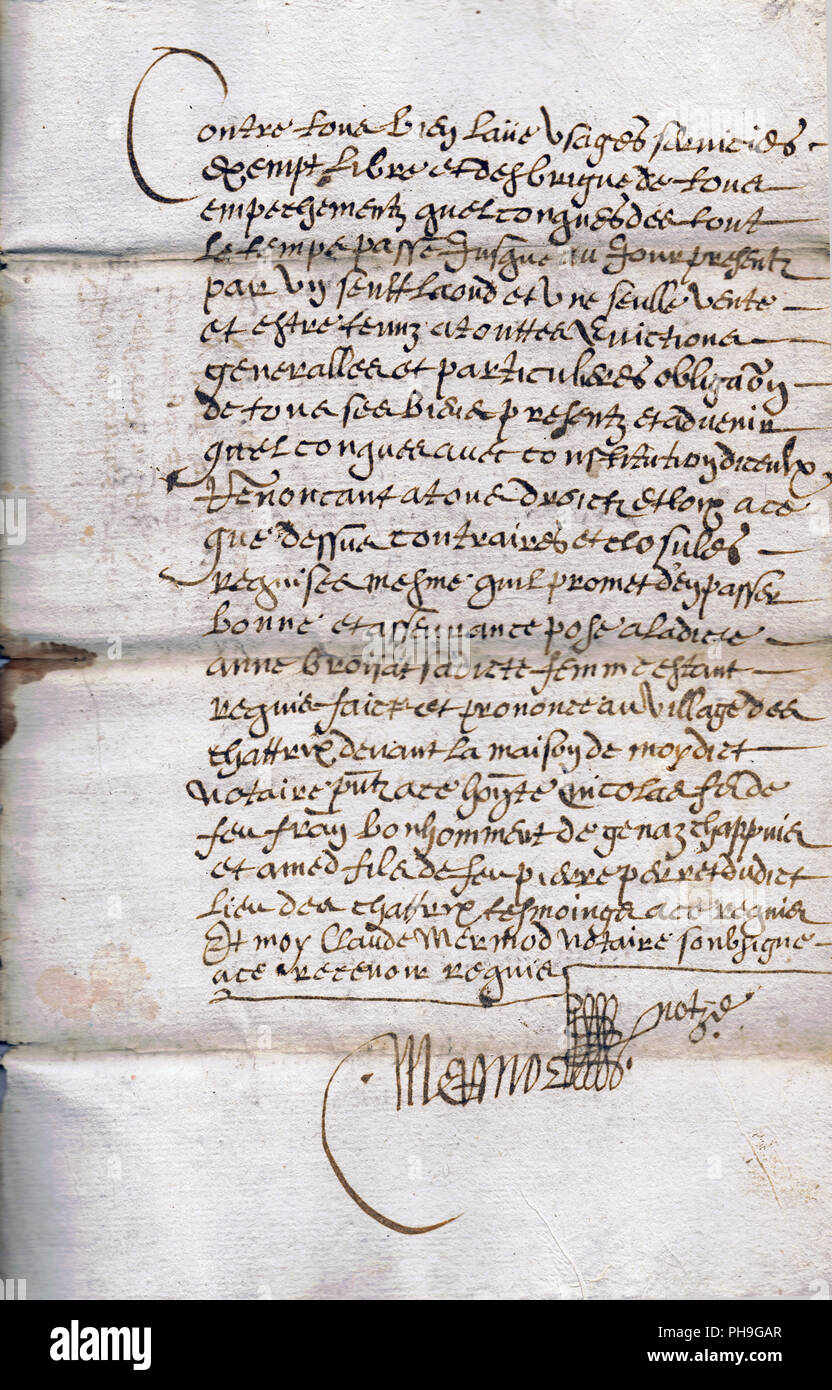 Contre tous bien laüe usages servicies
exempt libre et desbrigue de tous
empechementz quelconques des tout
le temps passe Jusque au Jour present
par un seul laoud et une seulle vente
et estre tenuz a touttes Evictions
generalles et particulieres obligaon
de tous ses biens presentz et advenir
quelconques avec constitution diceulx
Renoncant a tous droictz et loix a ce
que dessus contraires et closules
requises mesme quil promet den passer
bonne et asseurance pose a ladicte
anne broyat sadicte femme estant
requis faict et prononce au village des
chattrix devant la maison de moydict
Notaire pntz a ce hnste nicolas fils de
feu fran bonhomment de genaz chappuis
et amed fils de feu pierre perret dudict
lieu des chattrix tesmoings a ce requis
Et moy Claude Mermod Notaire soubsigne
a ce recevoir requis
Mermod notre
alamy
Image ID: PH9GAR
www.alamy.com